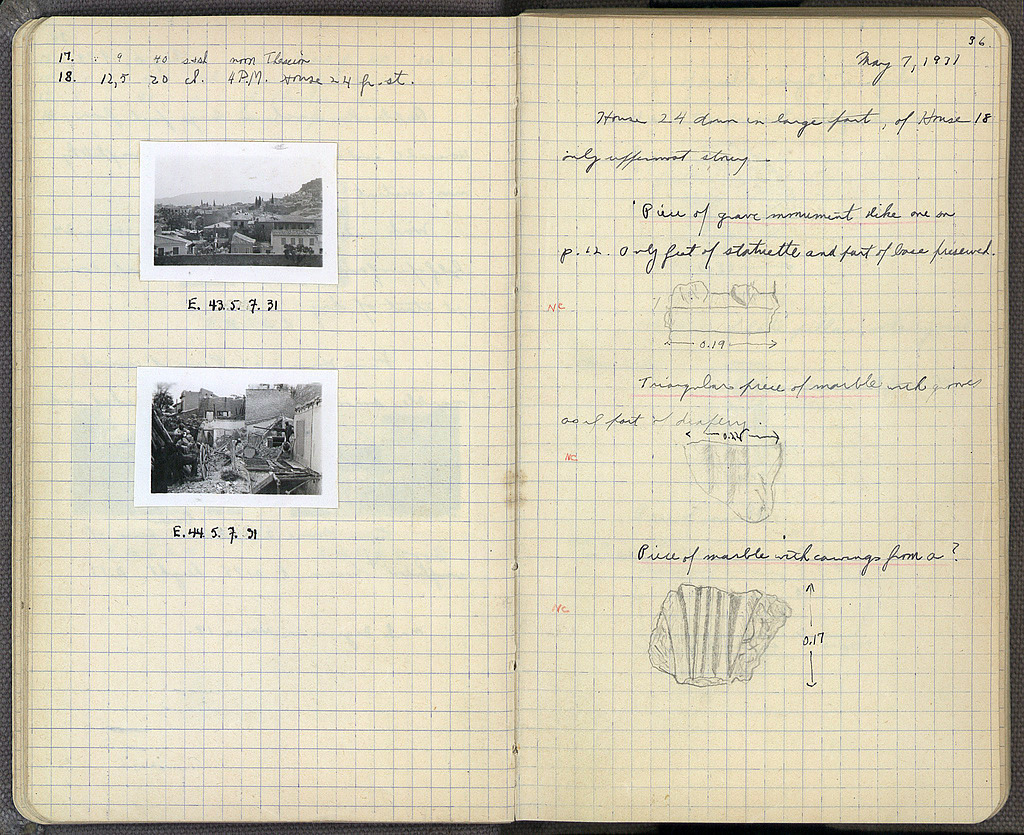 17. . 9 40 noon Theseion
18. 12,5 20 cl. 4 P.M. House 24 fr. st.
E. 43. 5. 7. 31
E. 44. 5. 7. 31
36
May 7, 1931
House 24 down in large part, of House 18
only uppermost storey
Piece of grave monument like one on
p. 12. Only feet of statuette and part of base preserved.
NC
0.19
Triangular piece of marble with grooves
as of part of drapery.
NC
Piece of marble with carvings from a ?
NC
0.17